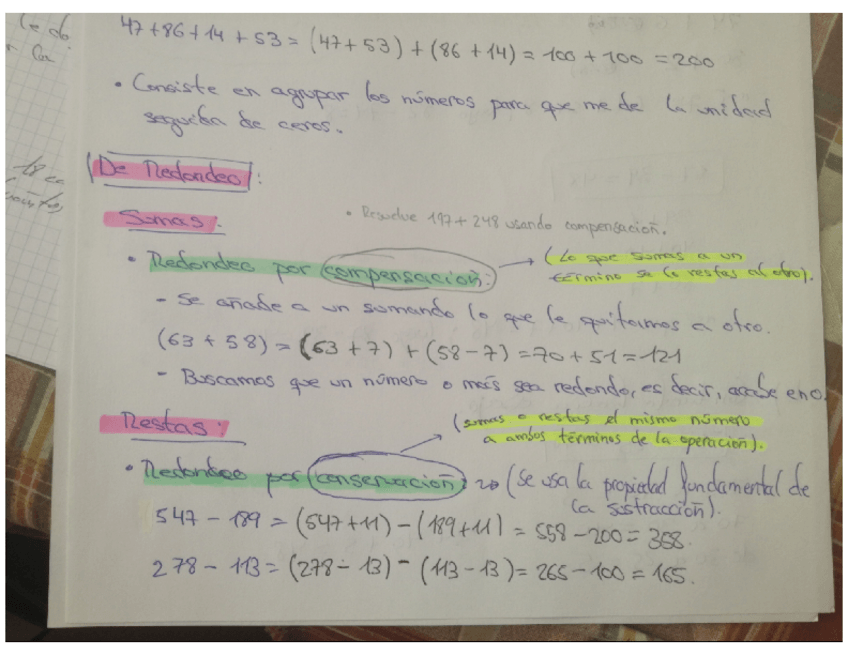 le do
la
47+86+14+53=(47+53)+(86+14)=100+100=200
• Consiste en agrupar los números para que me de la unidad
seguida de ceros.
De Redondeo:
Sumas:
• Resuelve 197+248 usando compensación.
• Redondeo por compensación: → (Lo que sumas a un
término se lo restas al otro).
- Se añade a un sumando lo que le quitamos a otro.
(63+58)=(63+7)+(58-7)=70+51=121
- Buscamos que un número o más sea redondo, es decir, acabe en 0.
Restas:
(sumas o restas el mismo número
a ambos términos de la operación).
• Redondeo por conservación → (Se usa la propiedad fundamental de
la sustracción).
547-189=(547+11)-(189+11)=558-200=358.
278-113=(278-13)-(113-13)=265-100=165.